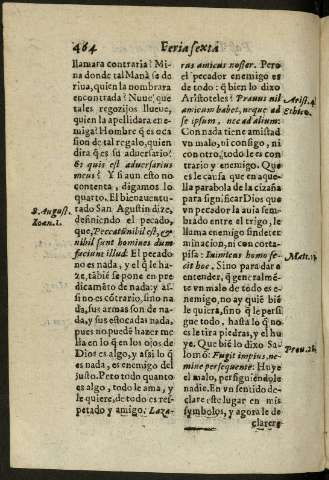 464 Feria sexta
llamara contraria? Mi-
na donde tal Manà se de
riua, quien la nombrara
encontrada? Nuue que
tales regozijos llueue,
quien la apellidara ene-
miga? Hombre q̃ es oca
sion de tal regalo, quien
dira q̃ es su aduersario?
Et quis est aduersarius
meus? Y si aun esto no
contenta, digamos lo
quarto. El bienauentu-
rado San Agustin dize,
definiendo el pecado,
que, Peccatũ nihil est, &
nihil sunt homines dum
faciunt illud: El pecado
no es nada, y el q̃ le ha-
ze, tãbiẽ se pone en pre-
dicamẽto de nada: y as-
si no es cõtrario, sino na
da, sus armas son de na-
da, y sus estocadas nada,
pues no puede hazer me
lla en lo q̃ en los ojos de
Dios es algo, y assi lo q̃
es nada, es enemigo del
justo. Pero todo quanto
es algo, todo le ama, y
le quiere, de todo es res-
petado y amigo. Laza-
S. August.
Ioan. 1.
rus amicus noster. Pero
el pecador enemigo es
de todo: q̃ bien lo dixo
Aristoteles? Prauus nil
amicum habet, neque ad
se ipsum, nec ad alium:
Con nada tiene amistad
vn malo, ni consigo, ni
con otro, todo le es con
trario y enemigo. Que
es le causa que en aque-
lla parabola de la cizaña
para significar Dios que
vn pecador la auia sem-
brado entre el trigo, le
llama enemigo sin deter
minacion, ni con corta-
pisa: Inimicus homo fe-
cit hoc. Sino para dar a
entender, q̃ generalmẽ-
te vn malo de todo es e-
nemigo, no ay quiẽ biẽ
le quiera, sino q̃ le persi
gue todo, hasta lo q̃ no
es le tira piedras, y el hu
ye. Que biẽ lo dixo Sa-
lomõ: Fugit impius, ne-
mine persequente: Huye
el malo, persiguiẽdole
nadie. En vn sentido de-
clare este lugar en mis
symbolos, y agora le de
clarere
Aristi. 4.
Ethico.
Mat. 13.
Prou. 28.